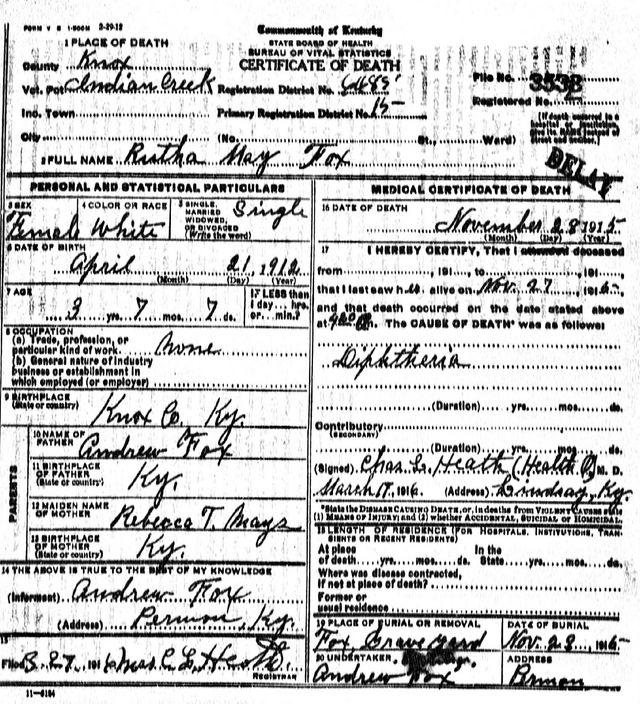 FORM V S 1-500M 2-29-12
Commonwealth of Kentucky
STATE BOARD OF HEALTH
BUREAU OF VITAL STATISTICS
CERTIFICATE OF DEATH
1 PLACE OF DEATH
County Knox
Vot. Pct Indian Creek
Registration District No.
File No. 3538
Inc. Town
Primary Registration District No. 15-
Registered No. 2
City
(No. St., Ward)
[If death occurred in a hospital or institution, give its NAME instead of street and number.]
2 FULL NAME Rutha May Fox
DELAY
PERSONAL AND STATISTICAL PARTICULARS
3 SEX Female
4 COLOR OR RACE White
5 SINGLE, MARRIED WIDOWED, OR DIVORCED (Write the word) Single
6 DATE OF BIRTH
April 21, 1912
(Month) (Day) (Year)
7 AGE
3 yrs. 7 mos. 7 ds.
If LESS than 1 day ... hrs. or ... min.?
8 OCCUPATION
(a) Trade, profession, or particular kind of work None
(b) General nature of industry business or establishment in which employed (or employer)
9 BIRTHPLACE
(State or country) Knox Co. Ky.
PARENTS
10 NAME OF FATHER Andrew Fox
11 BIRTHPLACE OF FATHER (State or country) Ky.
12 MAIDEN NAME OF MOTHER Rebecca T. Mays
13 BIRTHPLACE OF MOTHER (State or country) Ky.
14 THE ABOVE IS TRUE TO THE BEST OF MY KNOWLEDGE
(Informant) Andrew Fox
(Address) Permon, Ky.
15
Filed 3-27, 1916 Chas. L. Heath.
REGISTRAR
11-5184
MEDICAL CERTIFICATE OF DEATH
16 DATE OF DEATH
November 28 1915
(Month) (Day) (Year)
17 I HEREBY CERTIFY, That I attended deceased
from , 191 , to , 191 ,
that I last saw h alive on Nov. 27, 191 ,
and that death occurred on the date stated above
at M. The CAUSE OF DEATH* was as follows:
Diphtheria
(Duration) yrs. mos. ds.
Contributory
(SECONDARY)
(Duration) yrs. mos. ds.
(Signed) Chas. L. Heath (Health M. D.
March 17, 1916 (Address) Lindsay, Ky.
*State the DISEASE CAUSING DEATH, or, in deaths from VIOLENT CAUSES state (1) MEANS OF INJURY; and (2) whether ACCIDENTAL, SUICIDAL OR HOMICIDAL.
18 LENGTH OF RESIDENCE (FOR HOSPITALS, INSTITUTIONS, TRANSIENTS OR RECENT RESIDENTS)
At place of death yrs. mos. ds. In the State yrs. mos. ds.
Where was disease contracted,
If not at place of death?
Former or
usual residence
19 PLACE OF BURIAL OR REMOVAL
Fox Grave Yard
DATE OF BURIAL
Nov. 28, 1915
20 UNDERTAKER
Andrew Fox
ADDRESS
Permon